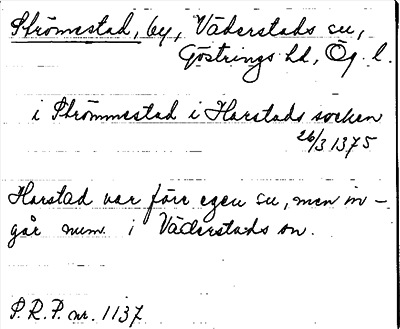 Strömestad, by, Väderstads su,
Göstrings hd, Ög. l.
i Strömmestad i Harstads socken
26/3 1375
Harstad var förr egen su, men in-
går num. i Väderstads sn.
P.R.P. nr. 1137